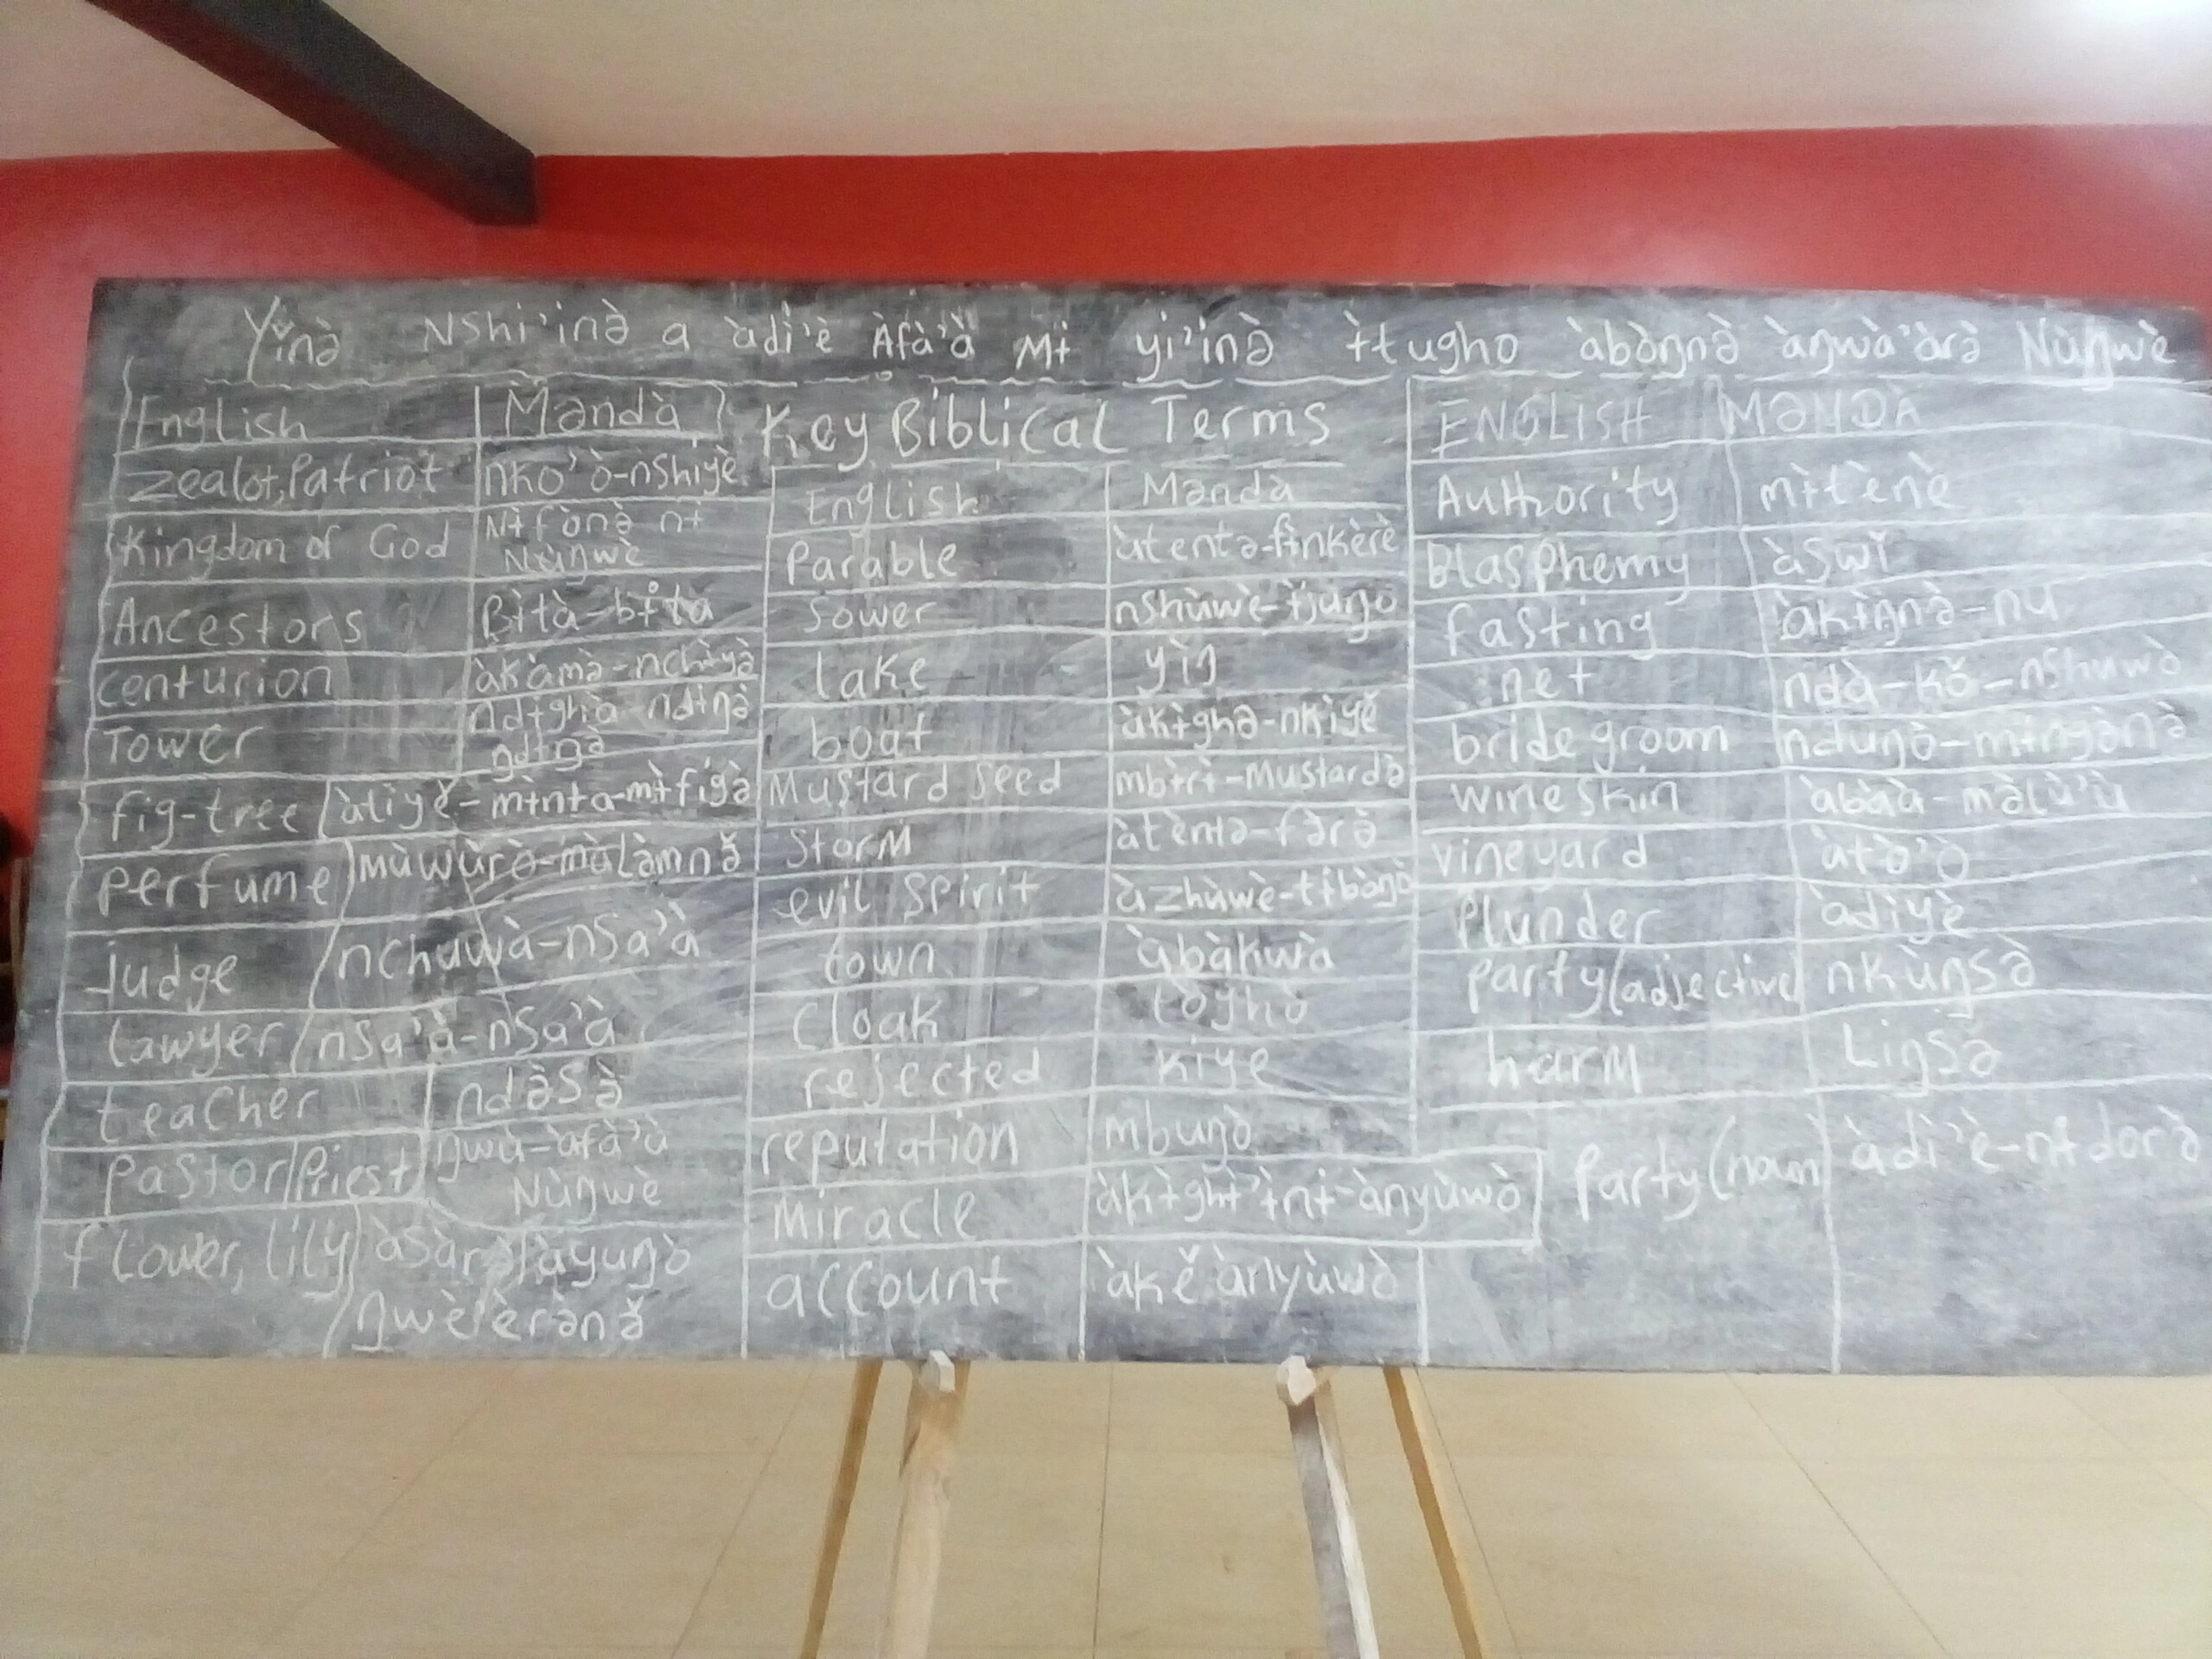 Yǐnə̀ Nshi'inə̀ a àdì'è Àfà'à Mɨ yi'inə̀ ɨ̀tugho àbòŋnə̀ àŋwà'àrə̀ Nùŋwè
Key Biblical Terms
English Məndà
Zealot, Patriot nko'ò-nshiyè
Kingdom of God Nɨfònə̀ nɨ
Nùŋwè
Ancestors Bɨ̀tà-bɨ̀ta
centurion àkàmə̀-nchɨ̀yə̀
Tower ndɨghà-ndɨŋə̀
fig-tree àtiyě-mɨ̀nta-mɨ̀figə̀
Perfume mùwùrə̀-mùlə̀mnə̌
judge nchuwà-nsa'à
lawyer nsa'à-nsa'à
teacher ndə̀sə̀
Pastor/Priest ŋwù-àfà'à
Nùŋwè
flower, lily
ŋwè'èrə̀nə̌
English Məndà
Parable àtentə-fɨ̀nkèrè
Sower nshùwè-ɨ̀juŋo
lake yìŋ
boat àkɨ̀ghə-nkìyě
Mustard Seed mbɨ̀rɨ-Mustardə
Storm àtèntə-fə̀rə̀
evil spirit àzhùwè-tɨ̀bòŋò
town àbàkwà
Cloak tòghò
rejected kiye
reputation mbuŋò
Miracle àkɨ̀ghɨ'ɨ̀nɨ-ànyùwò
account àkě ànyùwò
ENGLISH MƏNDÀ
Authority mɨ̀tènè
Blasphemy àswǐ
fasting àkɨ̀ŋnə̀-nu
net ndà-kǒ-nshuwò
bride groom nduŋò-mɨngə̀nə̀
wine skin àbàà-mə̀lù'ù
vineyard àtò'ò
Plunder àdìyè
Party (adjective) nkùŋsə̀
harm Liŋsə̀
Party (noun) àdì'è-nɨ̀dorə̀